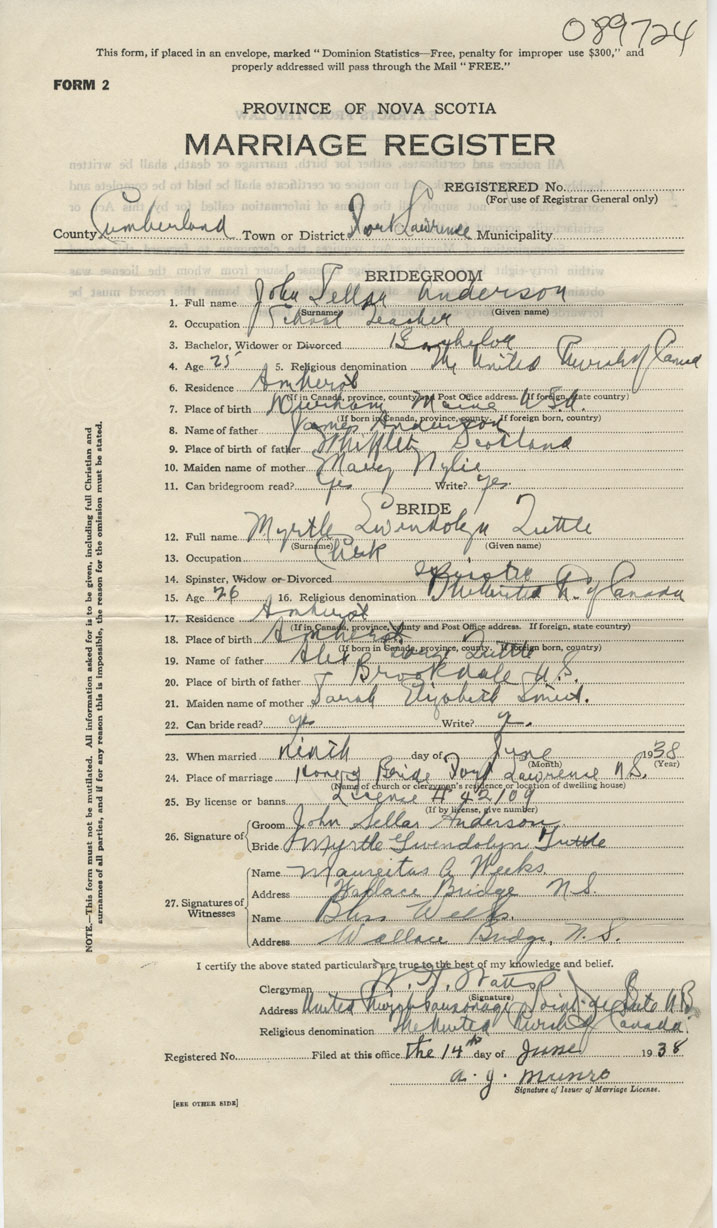 089724
This form, if placed in an envelope, marked "Dominion Statistics—Free, penalty for improper use $300," and
properly addressed will pass through the Mail "FREE."
FORM 2
PROVINCE OF NOVA SCOTIA
MARRIAGE REGISTER
REGISTERED No.
(For use of Registrar General only)
County Cumberland Town or District Fort Lawrence Municipality
BRIDEGROOM
1. Full name John Sellar Anderson
(Surname) (Given name)
2. Occupation School Teacher
3. Bachelor, Widower or Divorced Bachelor
4. Age 25 5. Religious denomination The United Church of Canada
6. Residence Amherst
(If in Canada, province, county and Post Office address. If foreign, state country)
7. Place of birth Maine U.S.A.
(If born in Canada, province, county. If foreign born, country)
8. Name of father James Anderson
9. Place of birth of father Scotland
10. Maiden name of mother Mary Wylie
11. Can bridegroom read? Yes Write? Yes.
BRIDE
12. Full name Myrtle Gwendolyn Tuttle
(Surname) (Given name)
13. Occupation Clerk
14. Spinster, Widow or Divorced Spinster
15. Age 26 16. Religious denomination The United Ch. of Canada
17. Residence Amherst
(If in Canada, province, county and Post Office address. If foreign, state country)
18. Place of birth Amherst
(If born in Canada, province, county. If foreign born, country)
19. Name of father Alex Tuttle
20. Place of birth of father Brookdale N.S.
21. Maiden name of mother Sarah Elizabeth
22. Can bride read? yes Write? y.
23. When married ninth day of June 1938
(Month) (Year)
24. Place of marriage Home of Bride Fort Lawrence N.S.
(Name of church or clergymen's residence or location of dwelling house)
25. By license or banns License # 42109
(If by license, give number)
26. Signature of
Groom John Sellar Anderson
Bride Myrtle Gwendolyn Tuttle
27. Signatures of Witnesses
Name A. Weeks.
Address Wallace Bridge N.S.
Name Bliss Weeks.
Address Wallace Bridge, N.S.
I certify the above stated particulars are true to the best of my knowledge and belief.
Clergyman Watts
(Signature)
Address United Church Parsonage Point de Bute N.B.
Religious denomination The United Church of Canada.
Registered No. Filed at this office The 14th day of June 1938
A. J. Munro
Signature of Issuer of Marriage License.
[SEE OTHER SIDE]
NOTE.—This form must not be mutilated. All information asked for is to be given, including full Christian and
surnames of all parties, and if for any reason this is impossible, the reason for the omission must be stated.